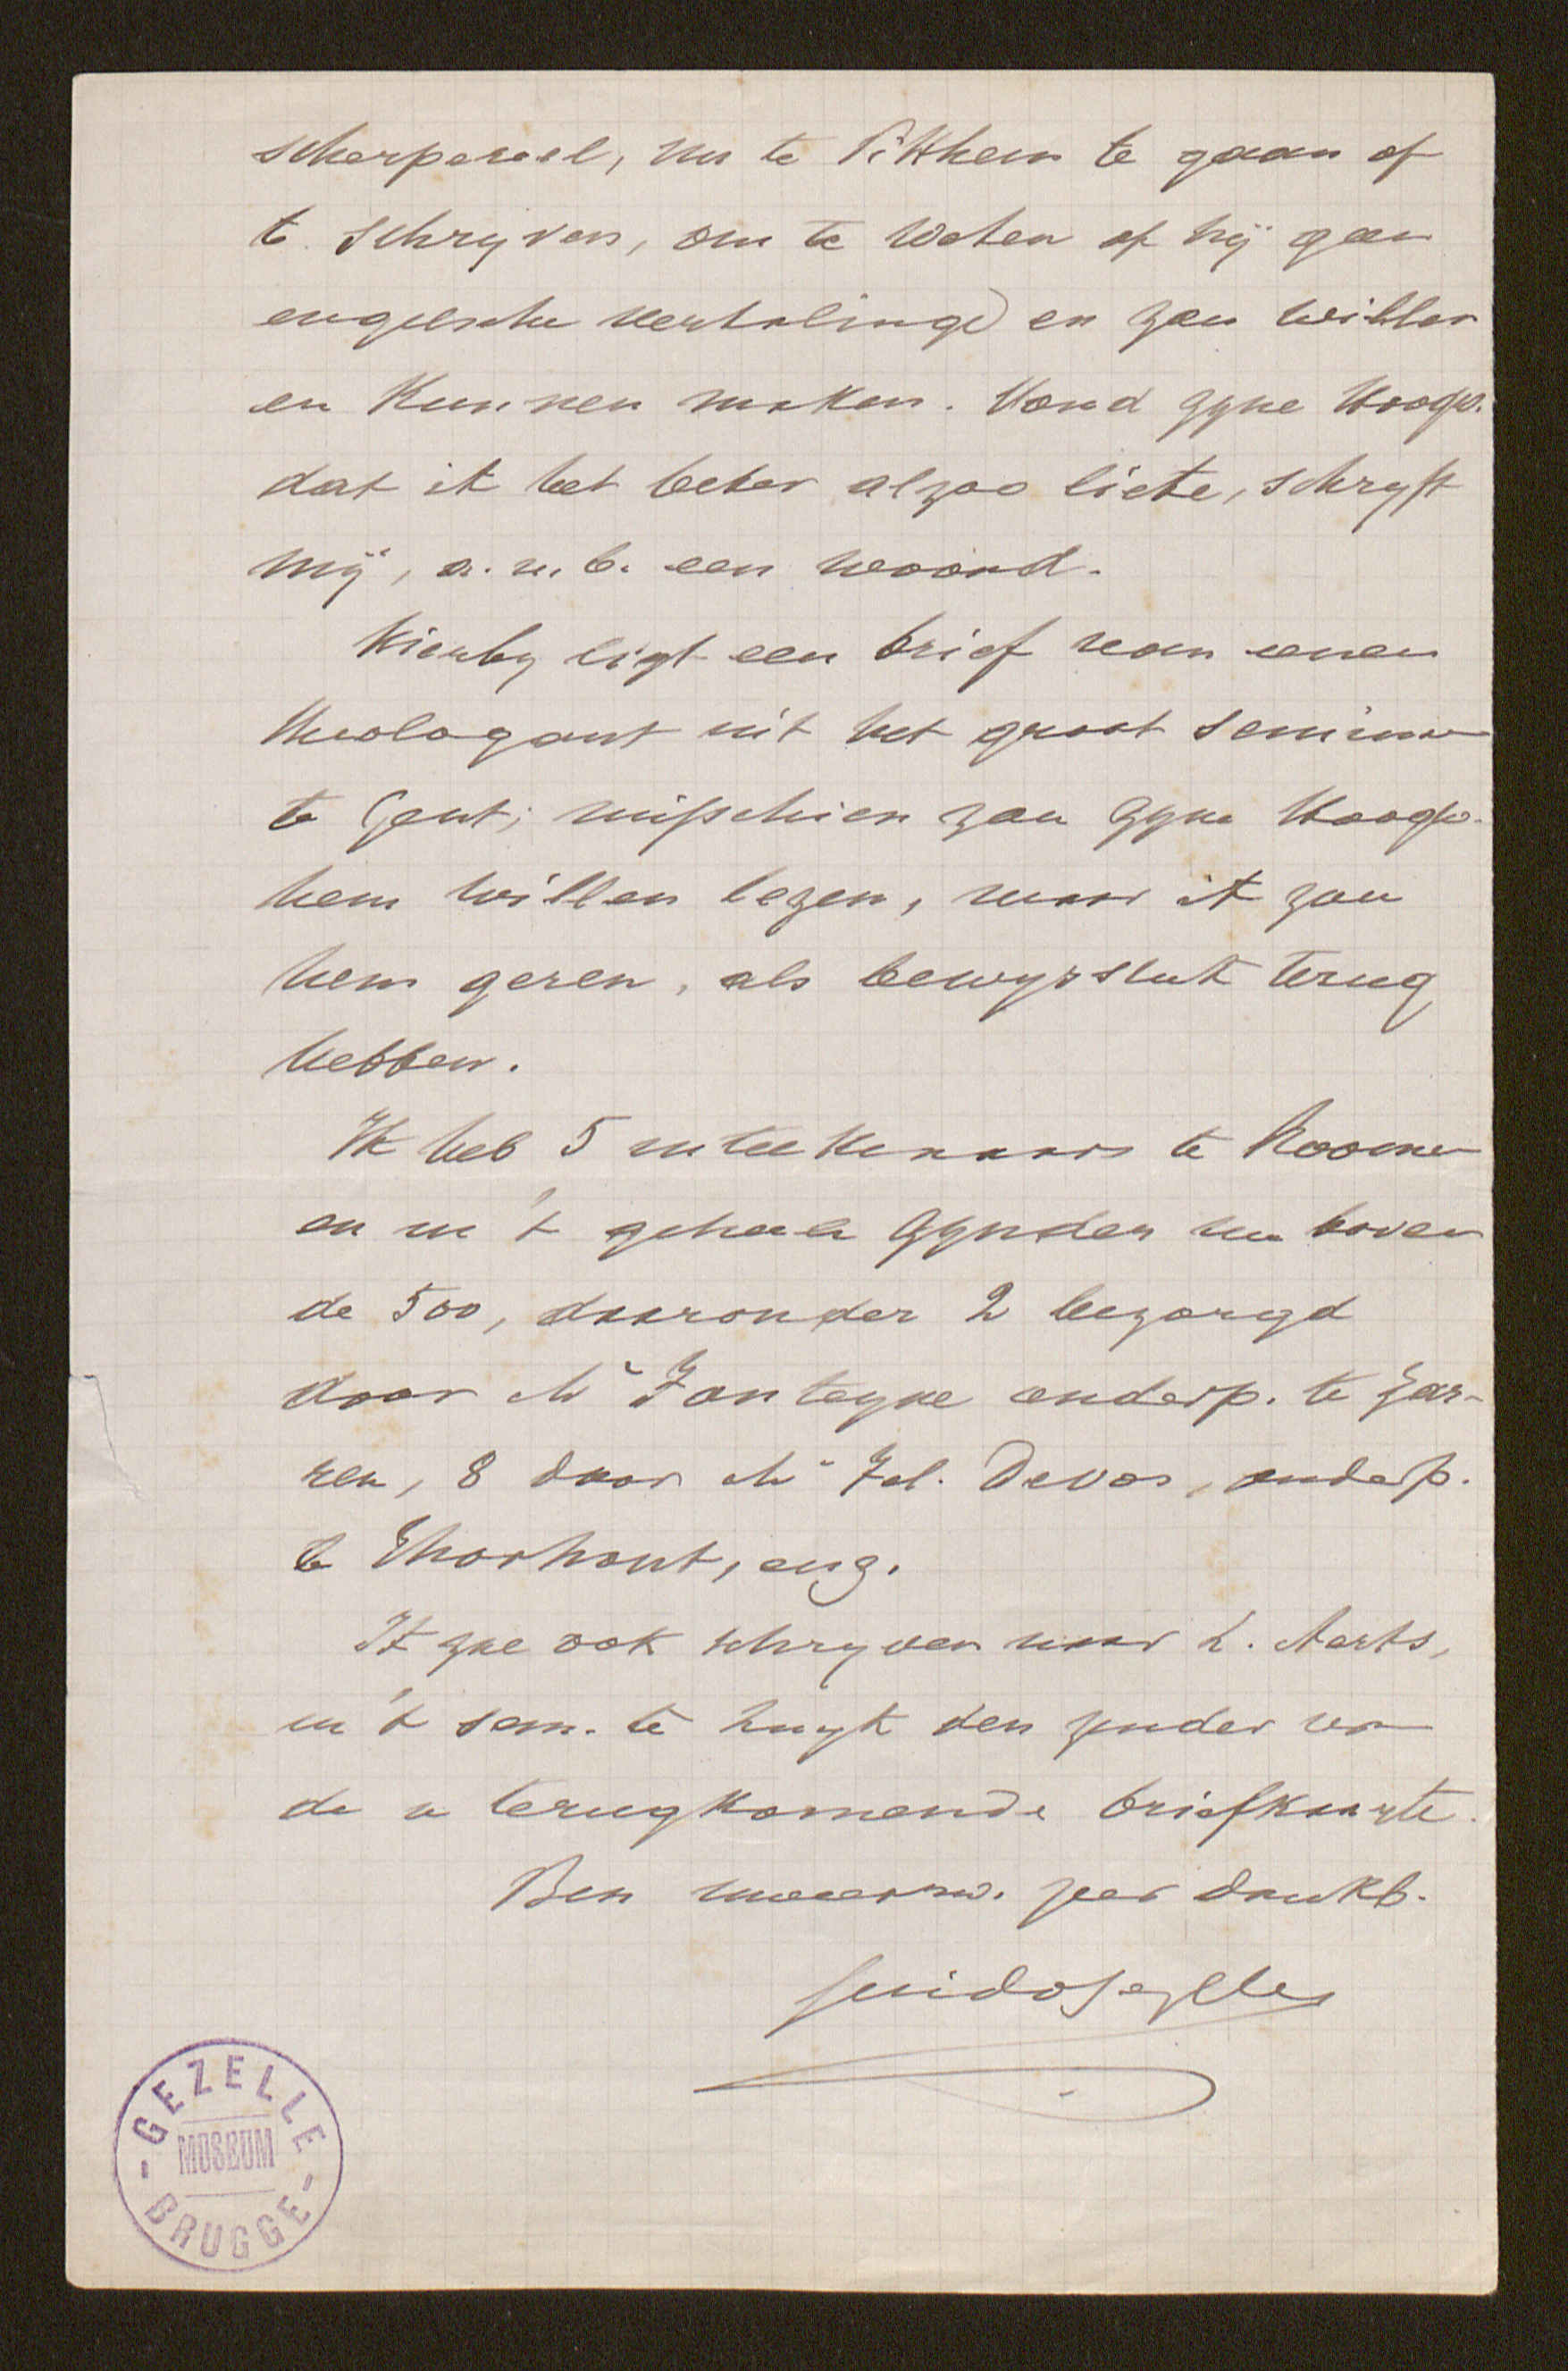 scherpereel, nu te Pitthem te gaan of
te schryven, om te weten of hij geen
engelsche vertalinge en zou willen
en kunnen maken. Vond zyne Hoogw.
dat ik het beter alzoo liete, schryft
mij, a.u.b. een woord.
Hierby ligt een brief van eenen
theologant uit het groot seminar
te Gent; misschien zou zyne Hoogw.
hem willen lezen, maar ik zou
hem geren, als bewysstuk terug
hebben.
Ik heb 5 inteekenaars te Roomen
en in 't geheele zynder nu boven
de 500, daaronder 2 bezorgd
door Mr Fonteyne onderp. te Zar-
ren, 8 door Mr Fel. Devos, onderp.
te Thorhout, enz.
Ik zal ook schryven naar L. Aerts,
in 't sem. te Luyk den zender van
de u terugkomende briefkaarte.
Ben zeer dankb.
Guido Gezelle
GEZELLE
MUSEUM
BRUGGE